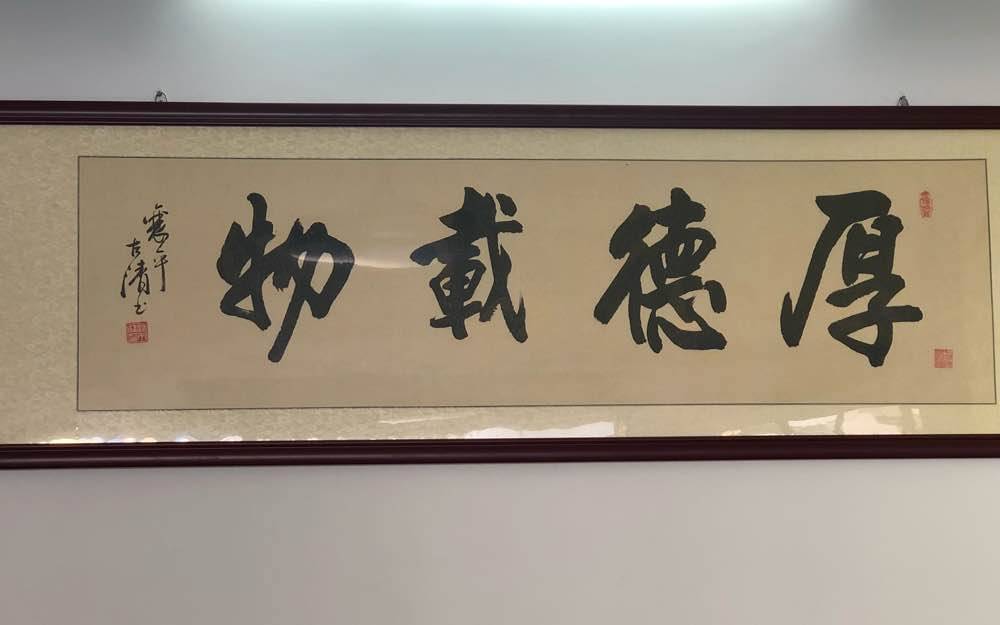 厚德載物
古清书